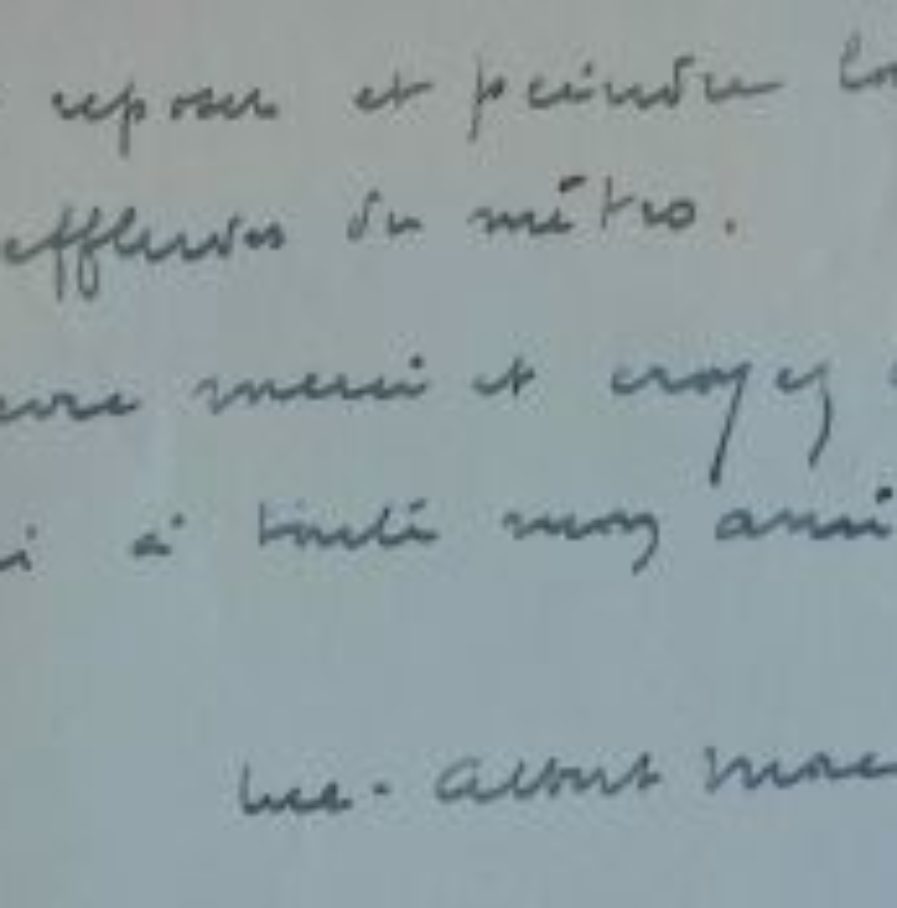 reposer et peindre
effluves du métro.
merci et croyez
à toute mon ami
Luc-Albert More